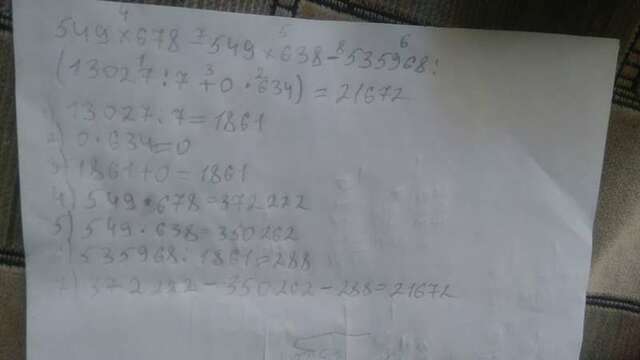 4 7 5 8 6
549×678-549×638-535968:
1 3 2
(13027:7+0·634)=21672
1) 13027:7=1861
2) 0·634=0
3) 1861+0=1861
4) 549·678=372222
5) 549·638=350262
535968:1861=288
372222-350262-288=21672